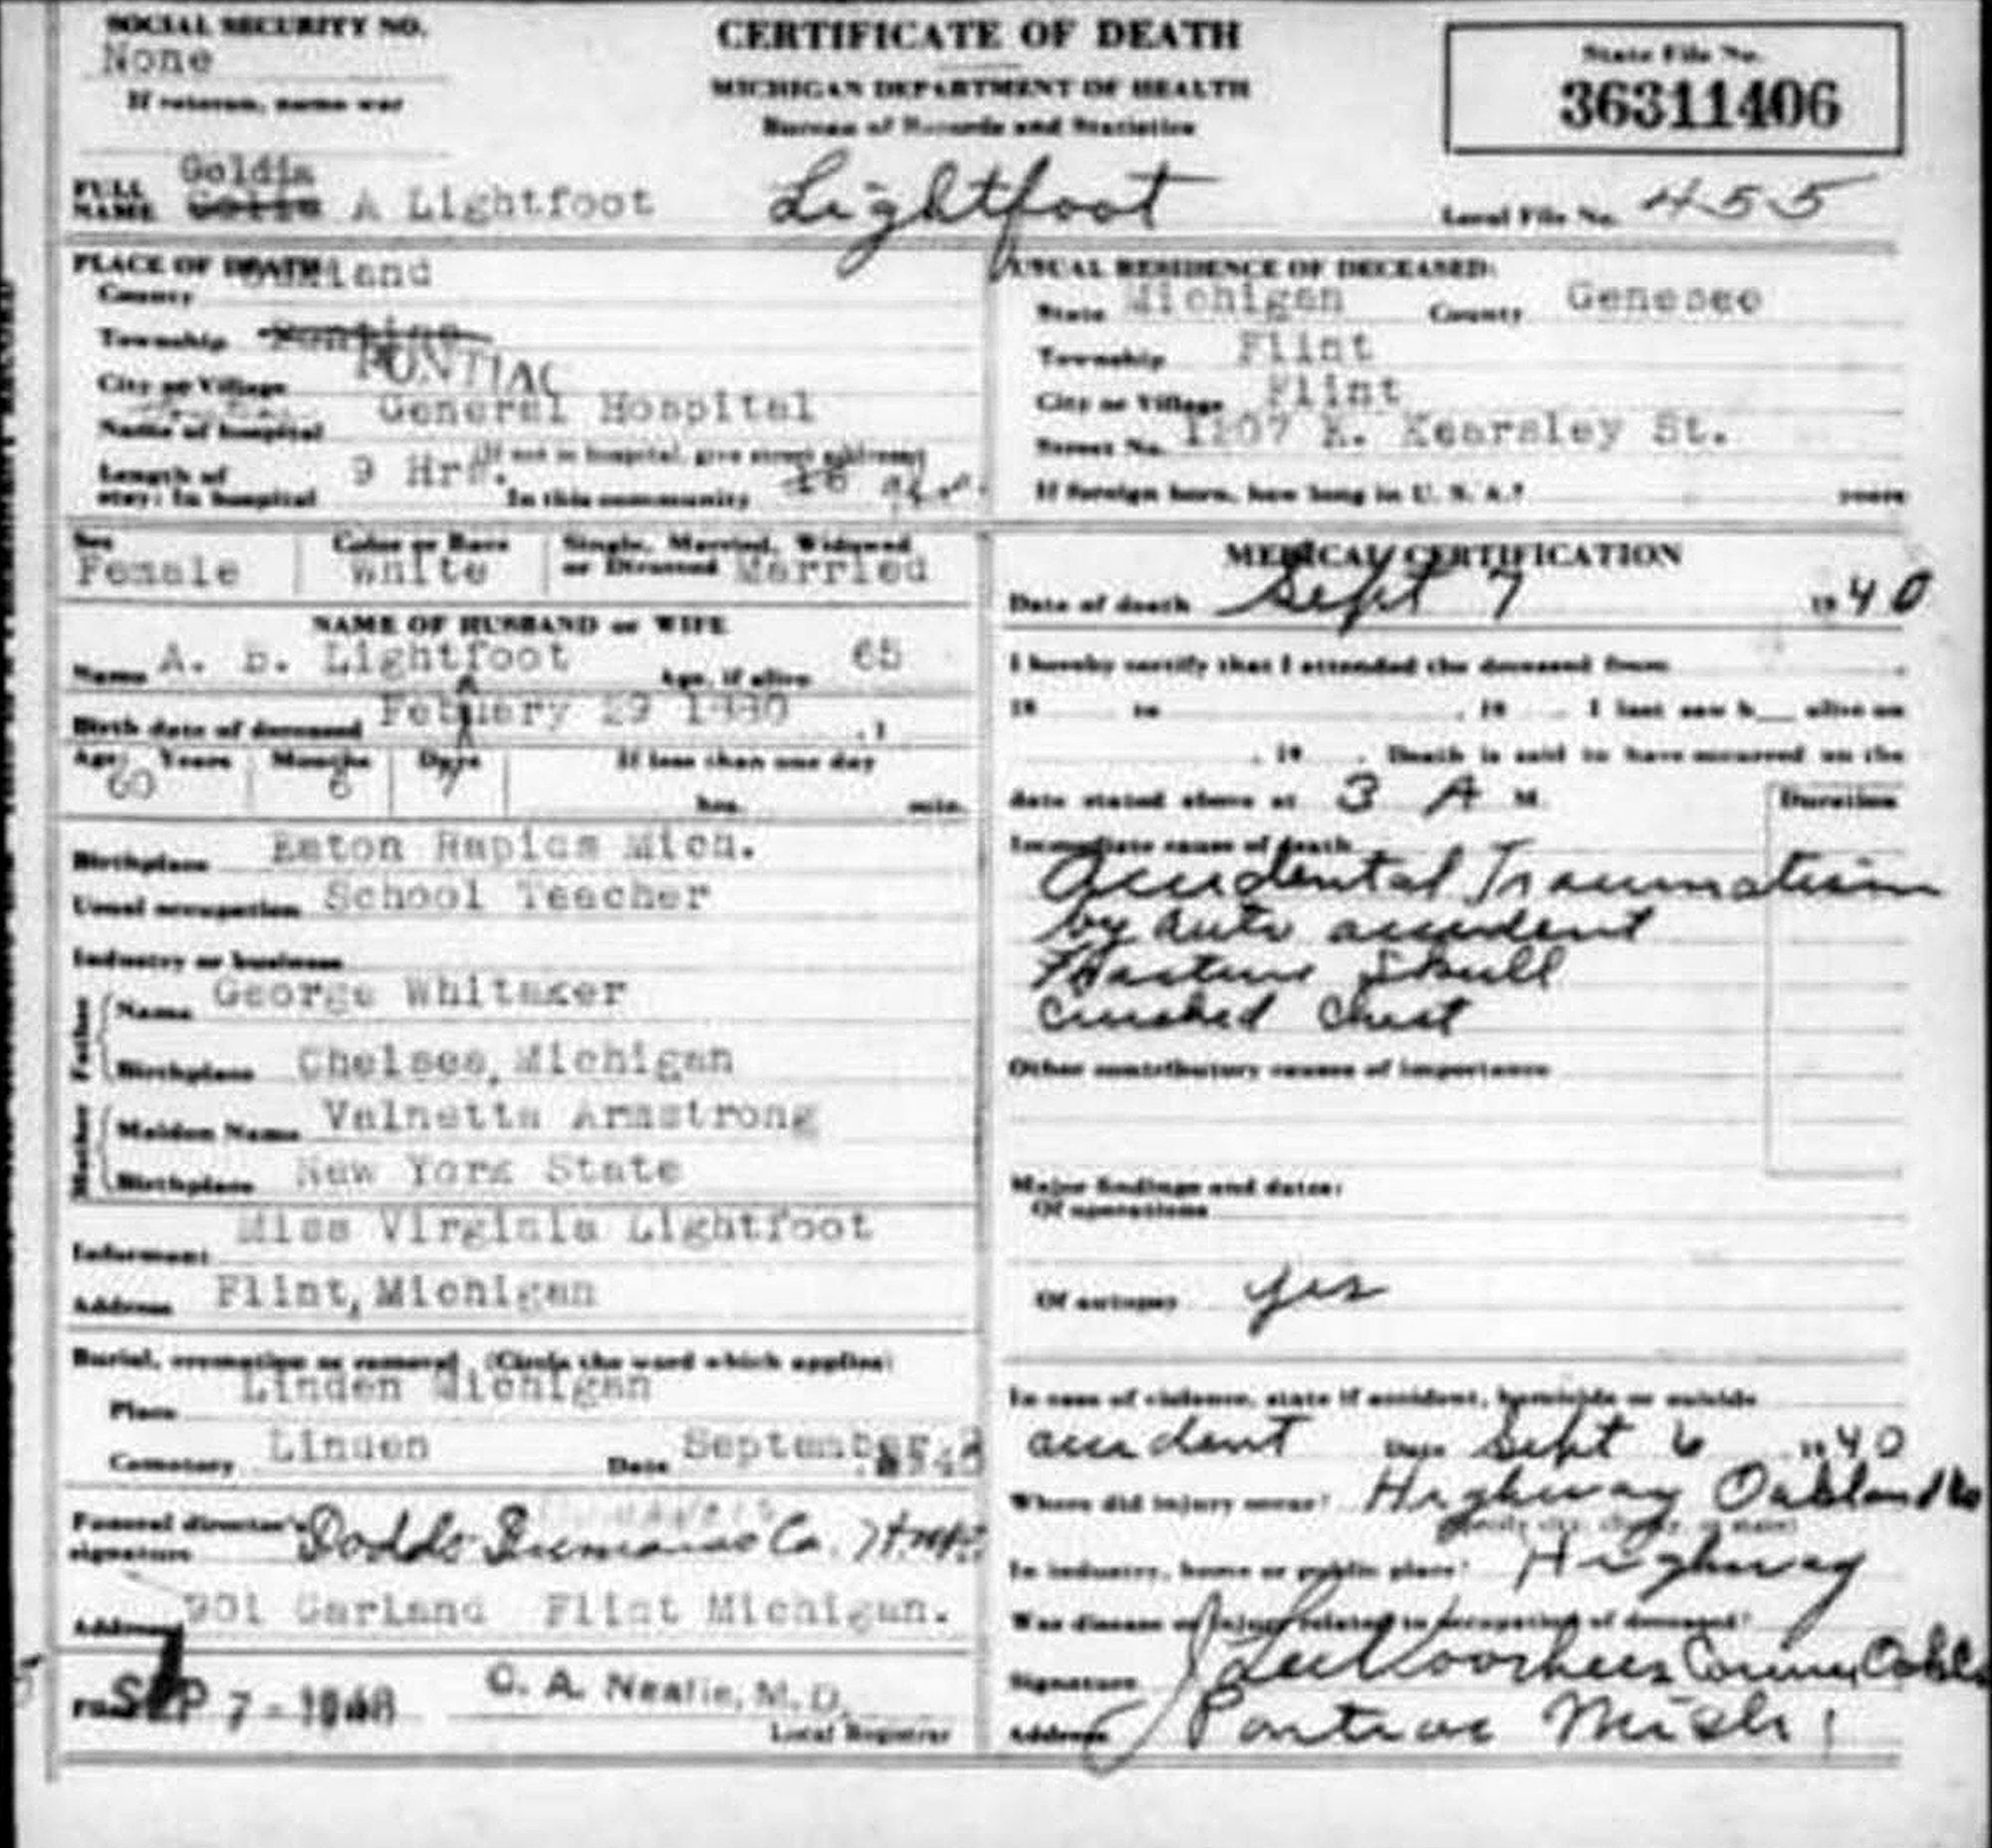 SOCIAL SECURITY NO.
None
If veteran, name war
CERTIFICATE OF DEATH
MICHIGAN DEPARTMENT OF HEALTH
Bureau of Records and Statistics
State File No.
36311406
Goldia
FULL NAME A Lightfoot
Lightfoot
Local File No. 455
PLACE OF DEATH
County
Township Pontiac
City or Village PONTIAC
Name of hospital General Hospital
(If not in hospital, give street address)
Length of stay: In hospital 9 Hrs. In this community
USUAL RESIDENCE OF DECEASED:
State Michigan County Genesee
Township Flint
City or Village Flint
Street No. 1207 E. Kearsley St.
If foreign born, how long in U. S. A.? years
Sex Female
Color or Race White
Single, Married, Widowed or Divorced Married
NAME OF HUSBAND or WIFE
Name A. B. Lightfoot Age, if alive 65
Birth date of deceased 29 1880 , 1
Age: Years Months Days If less than one day
60 6 7 hrs. min.
Birthplace Eaton Rapids Mich.
Usual occupation School Teacher
Industry or business
Father
Name George Whitaker
Birthplace Chelsea, Michigan
Mother
Maiden Name Valnetta Armstrong
Birthplace New York State
Informant Miss Virginia Lightfoot
Address Flint, Michigan
Burial, cremation or removal. (Circle the word which applies)
Place Linden Michigan
Cemetery Linden Date September
Funeral director's signature Dodds Co.
Address 901 Garland Flint Michigan.
SEP 7 - 
C. A. Neafie, M.D.
Local Registrar
MEDICAL CERTIFICATION
Date of death Sept 7 19 40
I hereby certify that I attended the deceased from
19 to , 19 I last saw h alive on
, 19 . Death is said to have occurred on the
date stated above at 3 A M.
Duration
Immediate cause of death
Accidental Traumatism
by auto accident
Fracture Skull
Crushed Chest
Other contributory causes of importance
Major findings and dates:
Of operations
Of autopsy yes
In case of violence, state if accident, homicide or suicide
accident Date Sept 6 19 40
Where did injury occur? Highway Oakland Co
(Specify city, county, or state)
In industry, home or public place? Highway
Was disease or injury related to occupation of deceased?
Signature J Lee Voorhees Coroner
Address Pontiac Mich